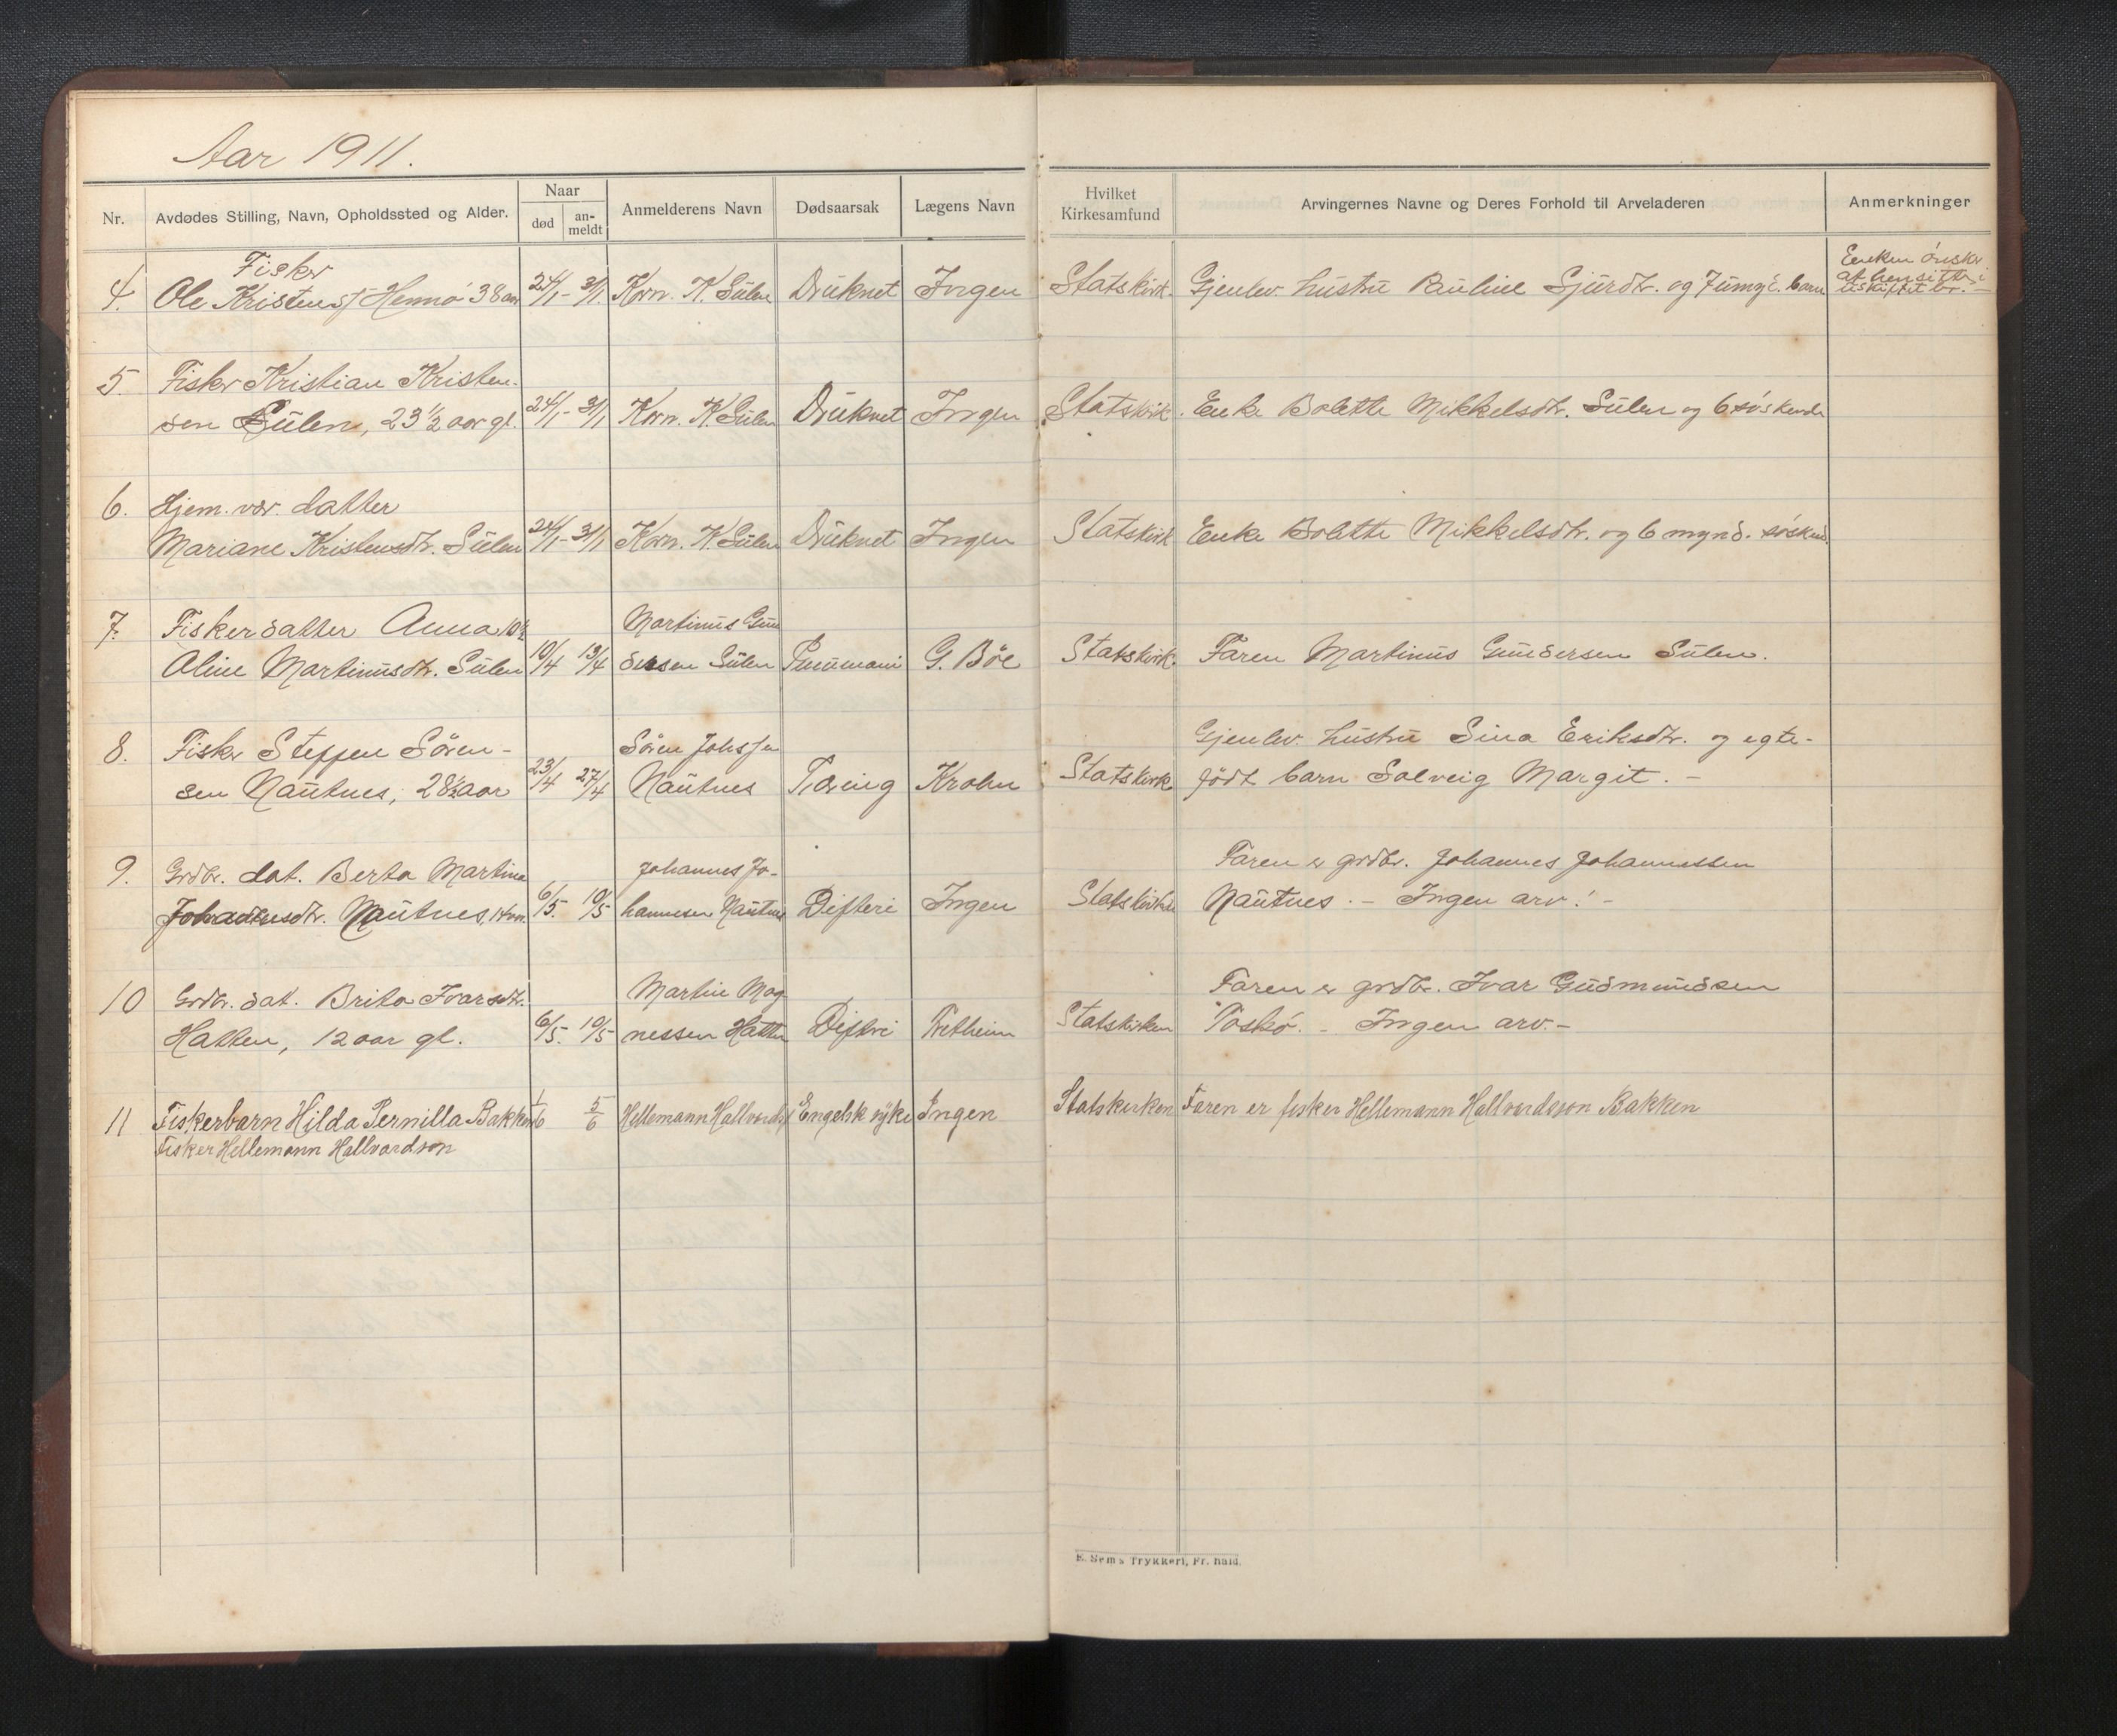 Aar 1911.
Nr. Avdødes Stilling, Navn, Opholdssted og Alder. Naar død an-meldt Anmelderens Navn Dødsaarsak Lægens Navn Hvilket Kirkesamfund Arvingernes Navne og Deres Forhold til Arveladeren Anmerkninger
Fisker Enken önsker
4. Ole Kristens. Hennö 38 aar 24/1 - 31/1 Korn. K. Sulen Druknet Ingen Statskirk. Gjenlev. hustru Pauline Sjurdtr. og 7 umyd. barn at hensitte i
uskiftet bo. -
5. Fisker Kristian Kristen-
sen Sulen, 23 1/2 aar gl. 24/1 - 31/1 Korn. K. Sulen Druknet Ingen Statskirk. Enke Bolette Mikkelsdtr. Sulen og 6 söskende
6. Hjem. vær. datter
Mariane Kristensdtr. Sulen 24/1 - 31/1 Korn. K. Sulen Druknet Ingen Statskirk Enke Bolette Mikkelsdtr. og 6 mynd. söskend.
7. Fiskerdatter Anna Martinus Gun
Aline Martinusdtr. Sulen 10/4 13/4 dersen Sulen Pneumoni G. Böe Statskirk. Faren Martinus Gundersen Sulen.
8. Fisker Steffen Sören- Sören Johs sen Gjenlev. hustru Sina Eriksdtr. og egte-
sen Nautnes, 28 1/2 aar 23/4 27/4 Nautnes Tæring Krohn Statskirk födt barn Solveig Margit. -
9. Grdbr. dat. Berta Martina Johannes Jo- Faren er grdbr. Johannes Johannessen
Johannesdtr. Nautnes, 6/5. 10/5 hannesen Nautnes Difteri Ingen Statskirken Nautnes. - Ingen arv. -
10 Grdbr. dat. Brita Ivarsdtr. Martin Mag Faren er grdbr. Ivar Gudmundsen
Hatten, 12 aar gl. 6/5. 10/5 nessen Hatten Difteri Tretheim Statskirken Toskö. - Ingen arv. -
11 Fiskerbarn Hilda Pernilla Bakken 1/6 5/6 Hellemann Hallvords. Engelsk syke Ingen Statskirken Faren er fisker Hellemann Hallvordsson Bakken
Fisker Hellemann Hallvardson
E. Sems Trykkeri, Fr. hald.